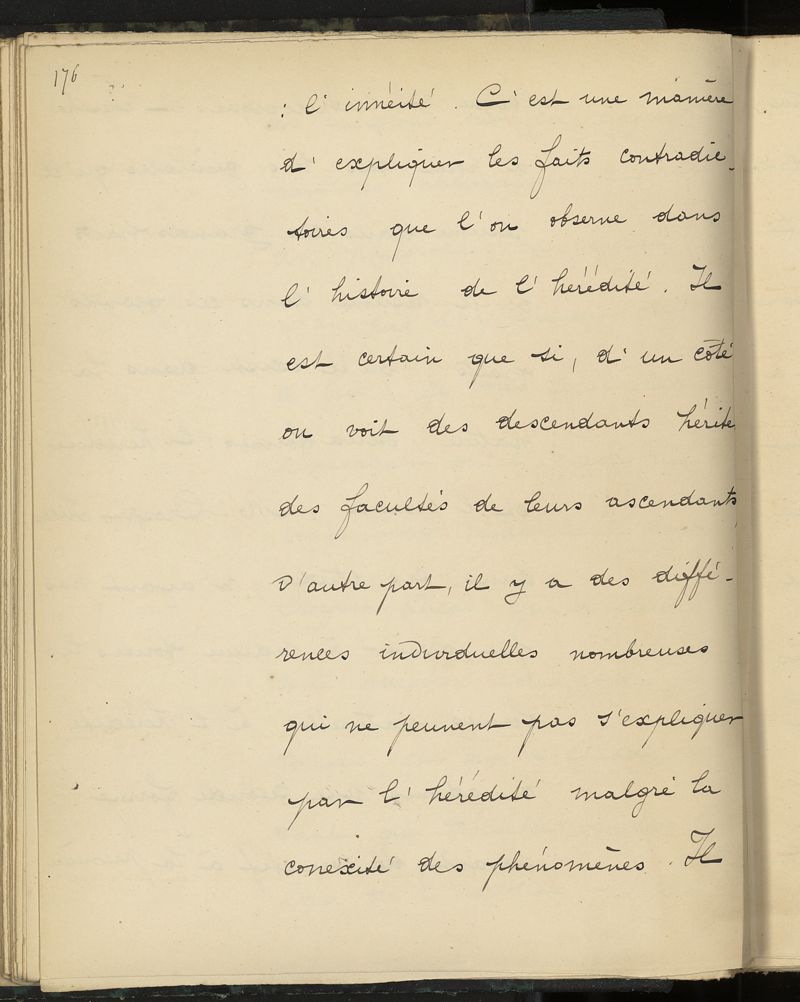 176
: l'innéité. C'est une manière
d'expliquer les faits contradic-
toires que l'on observe dans
l'histoire de l'hérédité. Il
est certain que si, d'un côté
on voit des descendants hérite
des facultés de leurs ascendants,
D'autre part, il y a des diffé-
rences individuelles nombreuses
qui ne peuvent pas s'expliquer
par l'hérédité malgré la
conexité des phénomènes. Il